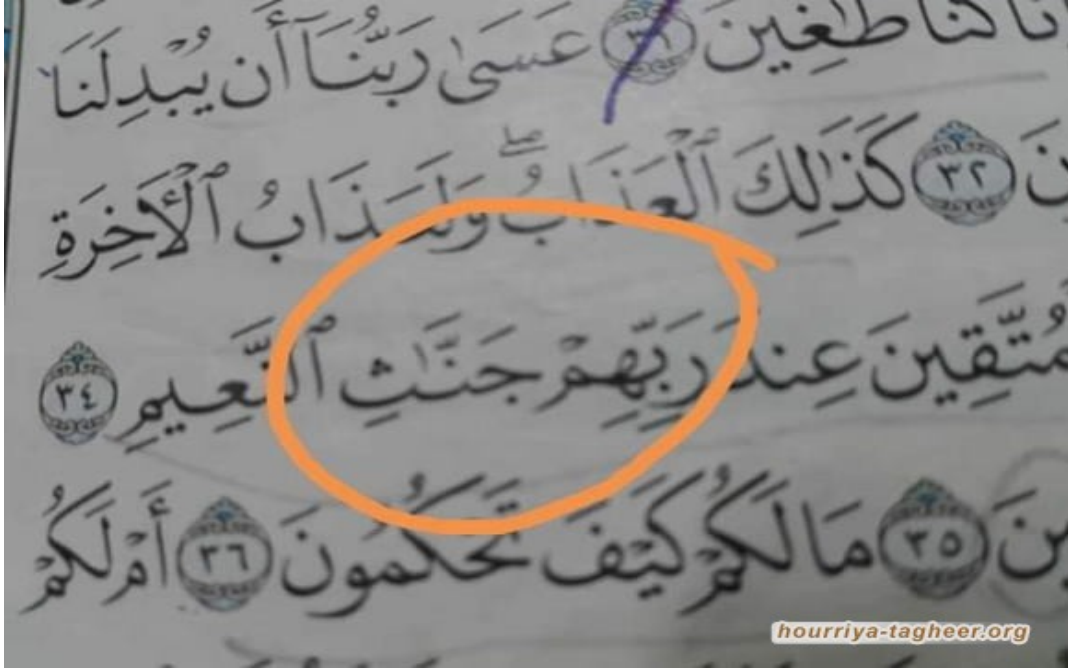 نا كُنَّا طَٰغِينَ ٣١ عَسَىٰ رَبُّنَآ أَن يُبْدِلَنَا
نَ ٣٢ كَذَٰلِكَ ٱلْعَذَابُ ۖ وَلَعَذَابُ ٱلْأَخِرَةِ
مُتَّقِينَ عِندَ رَبِّهِمْ جَنَّٰثِ ٱلنَّعِيمِ ٣٤
ينَ ٣٥ مَا لَكُمْ كَيْفَ تَحْكُمُونَ ٣٦ أَمْ لَكُمْ
hourriya-tagheer.org